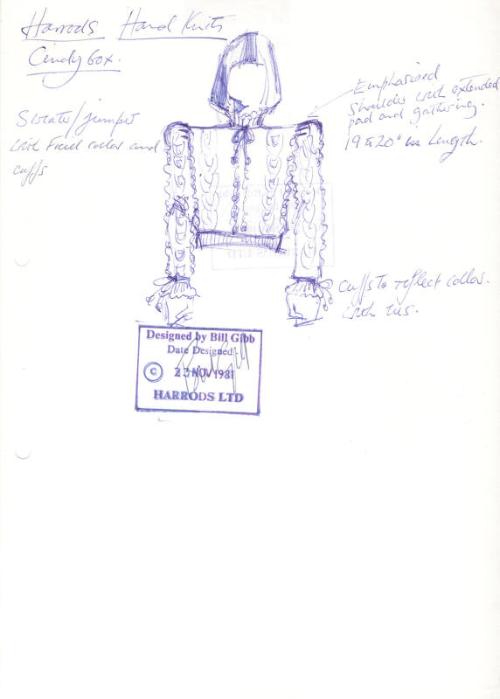 Harrods Hand Knits
Cindy box.
Sweater/jumper
with frill collar and
cuffs
Emphasised
shoulder with extended
pad and gathering.
19 to 20" in Length.
cuffs to reflect collar.
with ties.
Designed by Bill Gibb
Date Designed
© 23 NOV 1981
HARRODS LTD